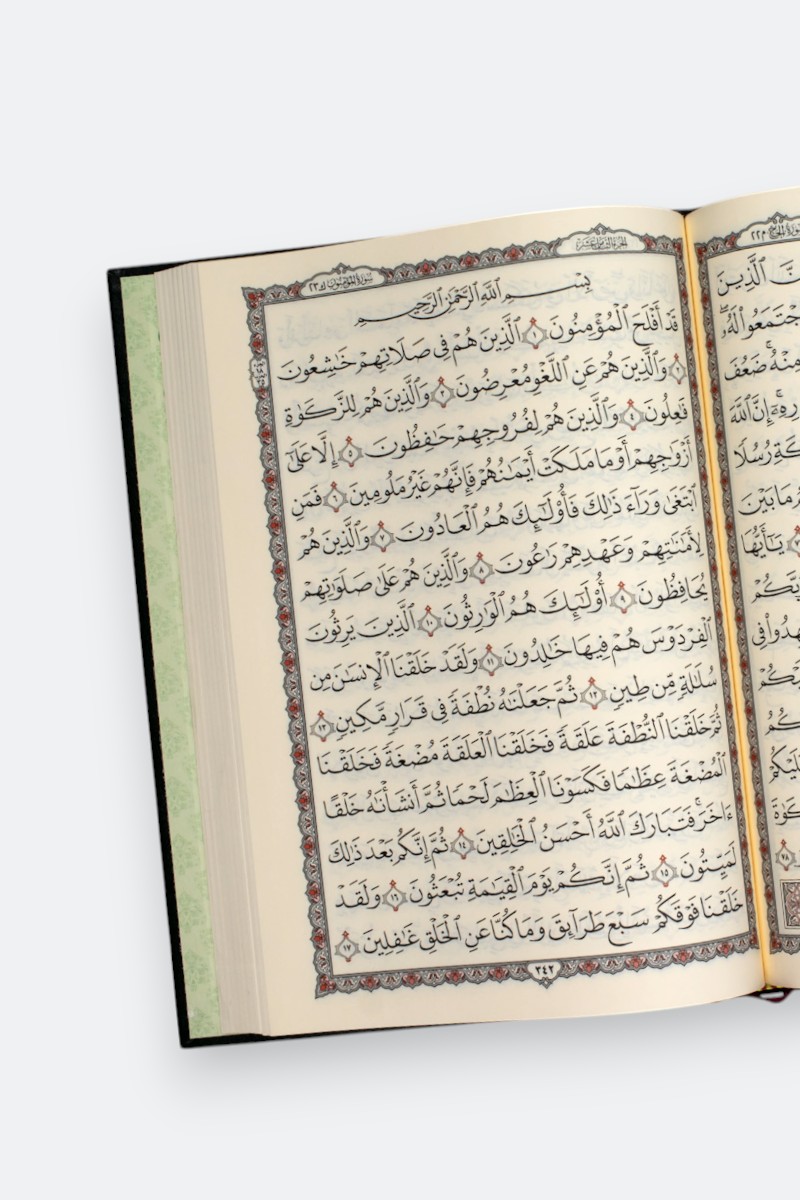 سورة الحج م٢٢
ٱلَّذِينَ
ٱجْتَمَعُوا۟ لَهُۥۖ
مِنْهُۚ ضَعُفَ
إِنَّ ٱللَّهَ
رُسُلًا
مَا بَيْنَ
يَـٰٓأَيُّهَا
رَبَّكُمْ
فِى
٧٨
الجزء الثامن عشر
سورة المؤمنون ك٢٣
بِسْمِ ٱللَّهِ ٱلرَّحْمَـٰنِ ٱلرَّحِيمِ
قَدْ أَفْلَحَ ٱلْمُؤْمِنُونَ ١ ٱلَّذِينَ هُمْ فِى صَلَاتِهِمْ خَـٰشِعُونَ
٢ وَٱلَّذِينَ هُمْ عَنِ ٱللَّغْوِ مُعْرِضُونَ ٣ وَٱلَّذِينَ هُمْ لِلزَّكَوٰةِ
فَـٰعِلُونَ ٤ وَٱلَّذِينَ هُمْ لِفُرُوجِهِمْ حَـٰفِظُونَ ٥ إِلَّا عَلَىٰٓ
أَزْوَٰجِهِمْ أَوْ مَا مَلَكَتْ أَيْمَـٰنُهُمْ فَإِنَّهُمْ غَيْرُ مَلُومِينَ ٦ فَمَنِ
ٱبْتَغَىٰ وَرَآءَ ذَٰلِكَ فَأُو۟لَـٰٓئِكَ هُمُ ٱلْعَادُونَ ٧ وَٱلَّذِينَ هُمْ
لِأَمَـٰنَـٰتِهِمْ وَعَهْدِهِمْ رَٰعُونَ ٨ وَٱلَّذِينَ هُمْ عَلَىٰ صَلَوَٰتِهِمْ
يُحَافِظُونَ ٩ أُو۟لَـٰٓئِكَ هُمُ ٱلْوَٰرِثُونَ ١٠ ٱلَّذِينَ يَرِثُونَ
ٱلْفِرْدَوْسَ هُمْ فِيهَا خَـٰلِدُونَ ١١ وَلَقَدْ خَلَقْنَا ٱلْإِنسَـٰنَ مِن
سُلَـٰلَةٍ مِّن طِينٍ ١٢ ثُمَّ جَعَلْنَـٰهُ نُطْفَةً فِى قَرَارٍ مَّكِينٍ ١٣
ثُمَّ خَلَقْنَا ٱلنُّطْفَةَ عَلَقَةً فَخَلَقْنَا ٱلْعَلَقَةَ مُضْغَةً فَخَلَقْنَا
ٱلْمُضْغَةَ عِظَـٰمًا فَكَسَوْنَا ٱلْعِظَـٰمَ لَحْمًا ثُمَّ أَنشَأْنَـٰهُ خَلْقًا
ءَاخَرَۚ فَتَبَارَكَ ٱللَّهُ أَحْسَنُ ٱلْخَـٰلِقِينَ ١٤ ثُمَّ إِنَّكُم بَعْدَ ذَٰلِكَ
لَمَيِّتُونَ ١٥ ثُمَّ إِنَّكُمْ يَوْمَ ٱلْقِيَـٰمَةِ تُبْعَثُونَ ١٦ وَلَقَدْ
خَلَقْنَا فَوْقَكُمْ سَبْعَ طَرَآئِقَ وَمَا كُنَّا عَنِ ٱلْخَلْقِ غَـٰفِلِينَ ١٧
٣٤٢